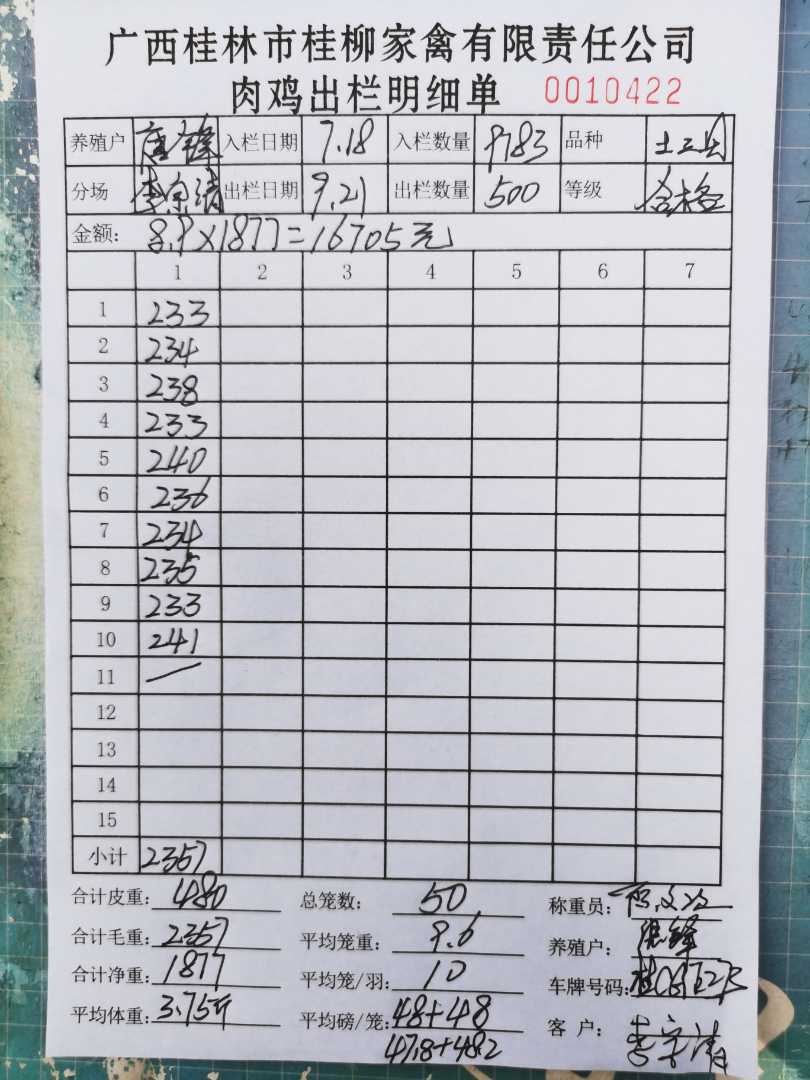 广西桂林市桂柳家禽有限责任公司
肉鸡出栏明细单 0010422
养殖户 入栏日期 7.18 入栏数量 9783 品种 土三
分场 李宗清 出栏日期 9.21 出栏数量 500 等级 合格
金额: 8.9×1877=16705元
1 2 3 4 5 6 7
1 233
2 234
3 238
4 233
5 240
6 236
7 234
8 235
9 233
10 241
11 —
12
13
14
15
小计 2357
合计皮重: 480 总笼数: 50 称重员:
合计毛重: 2357 平均笼重: 9.6 养殖户: 锋
合计净重: 1877 平均笼/羽: 10 车牌号码: 桂
平均体重: 3.75斤 平均磅/笼: 48+48 客 户: 李宗清
47.8+48.2